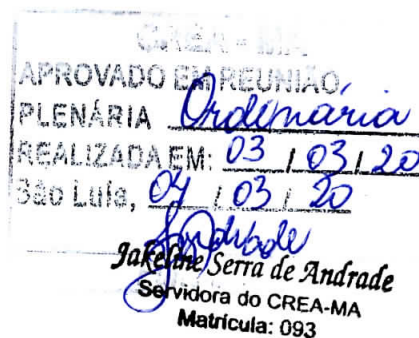 CREA - MA
APROVADO EM REUNIÃO
PLENÁRIA Ordinária
REALIZADA EM: 03 / 03 / 20
São Luís, 04 / 03 / 20
Jakeline Serra de Andrade
Servidora do CREA-MA
Matrícula: 093